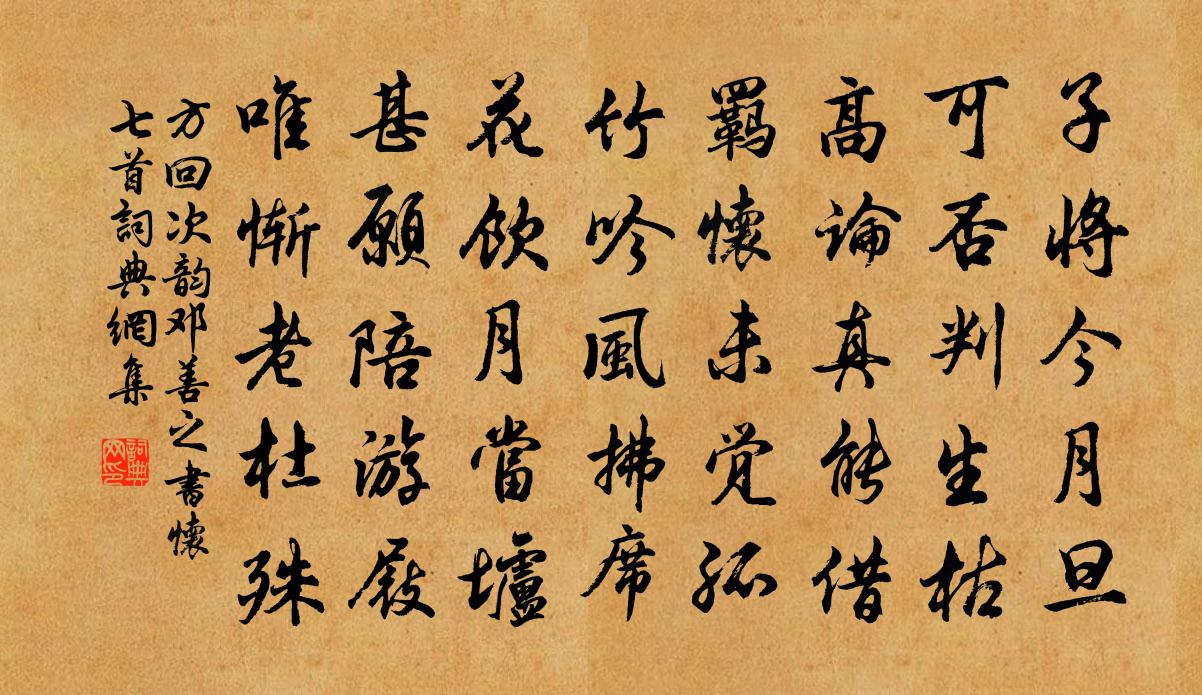 子將今月旦
可否判生枯
高論真能借
羈懷未覚孤
竹吟風拂席
花飲月當壚
甚願陪游屐
唯慚老杜殊
方回次韵邓善之書懷
七首詞典網集
詞典
网印